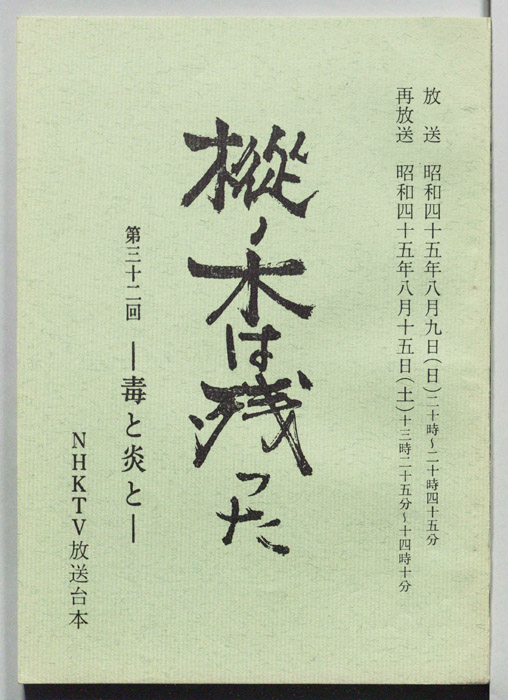 放送 昭和四十五年八月九日(日)二十時~二十時四十五分
再放送 昭和四十五年八月十五日(土)十三時二十五分~十四時十分
樅ノ木は残った
第三十二回 ―毒と炎と―
NHKTV放送台本